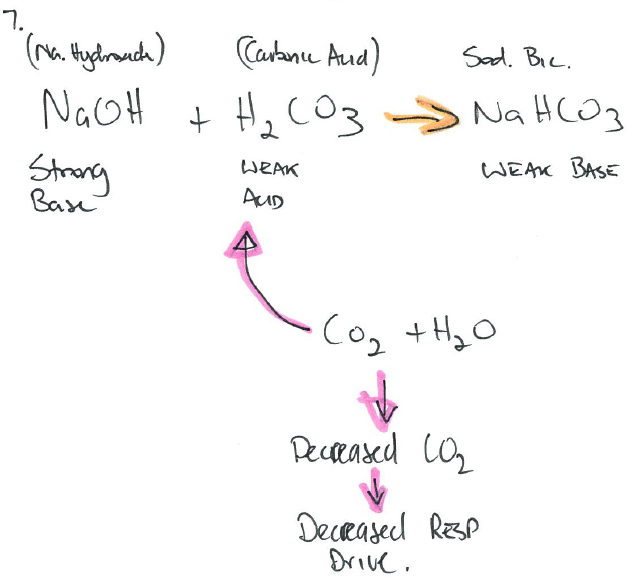 7.
(Na. Hydroxide) (Carbonic Acid) Sod. Bic.
NaOH + H2CO3 → NaHCO3
Strong Base WEAK ACID WEAK BASE
CO2 + H2O
Decreased CO2
Decreased RESP
DRIVE.